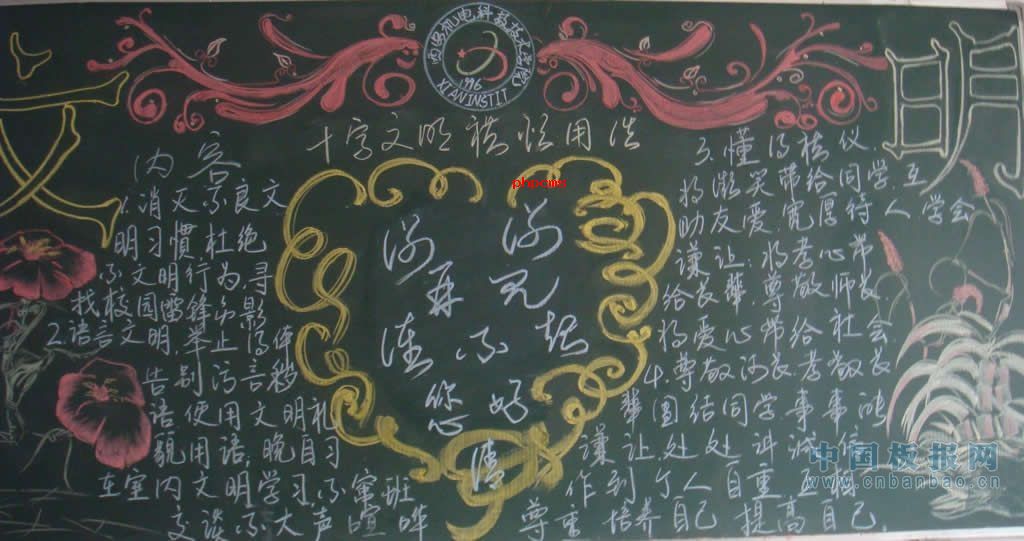 文
西安机电科技技术学院
1996
XI'AN INSTIT
十字文明礼貌用语
内容
1.消灭不良文
明习惯,杜绝
不文明行为,寻
找校园雷锋的影
2.语言文明,举止得体
告别污言秽
语使用文明礼
貌用语,晚自习
在室内文明学习不窜班
交谈不大声喧哗
谢 谢
再 见
谁 不 起
您 好
请
phpcms
3.懂得礼仪,
将微笑带给同学,互
助友爱,宽厚待人,学会
谦让,将孝心带
给长辈,尊敬师长,
将爱心带给社会,
4.尊敬师长孝敬长
辈团结同学事事
谦让处处讲诚信
作到个人自重互相
尊重培养自己提高自己。
明
中国板报网
www.cnbanbao.cn